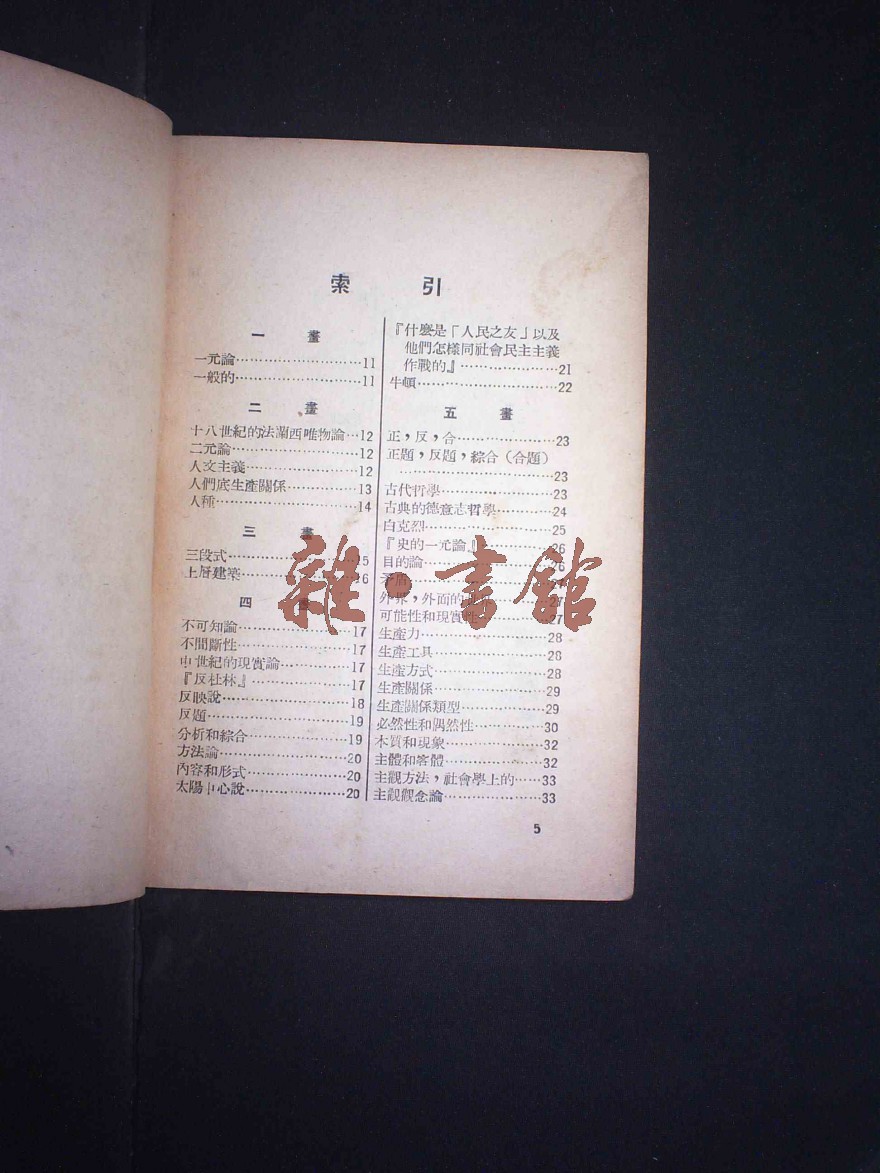 索 引
一 畫
一元論……11
一般的……11
二 畫
十八世紀的法蘭西唯物論…12
二元論……12
人文主義……12
人們底生產關係……13
人種……14
三 畫
三段式……15
上層建築……16
四 畫
不可知論……17
不間斷性……17
中世紀的現實論……17
『反杜林』……17
反映說……18
反題……19
分析和綜合……19
方法論……20
內容和形式……20
太陽中心說……20
『什麼是「人民之友」以及
他們怎樣同社會民主主義
作戰的』……21
牛頓……22
五 畫
正,反,合……23
正題,反題,綜合(合題)
……23
古代哲學……23
古典的德意志哲學……24
白克烈……25
『史的一元論』……26
目的論……26
矛盾……
外界,外面的……27
可能性和現實性……27
生產力……28
生產工具……28
生產方式……28
生產關係……29
生產關係類型……29
必然性和偶然性……30
本質和現象……32
主體和客體……32
主觀方法,社會學上的……33
主觀觀念論……33
5
雜·書館